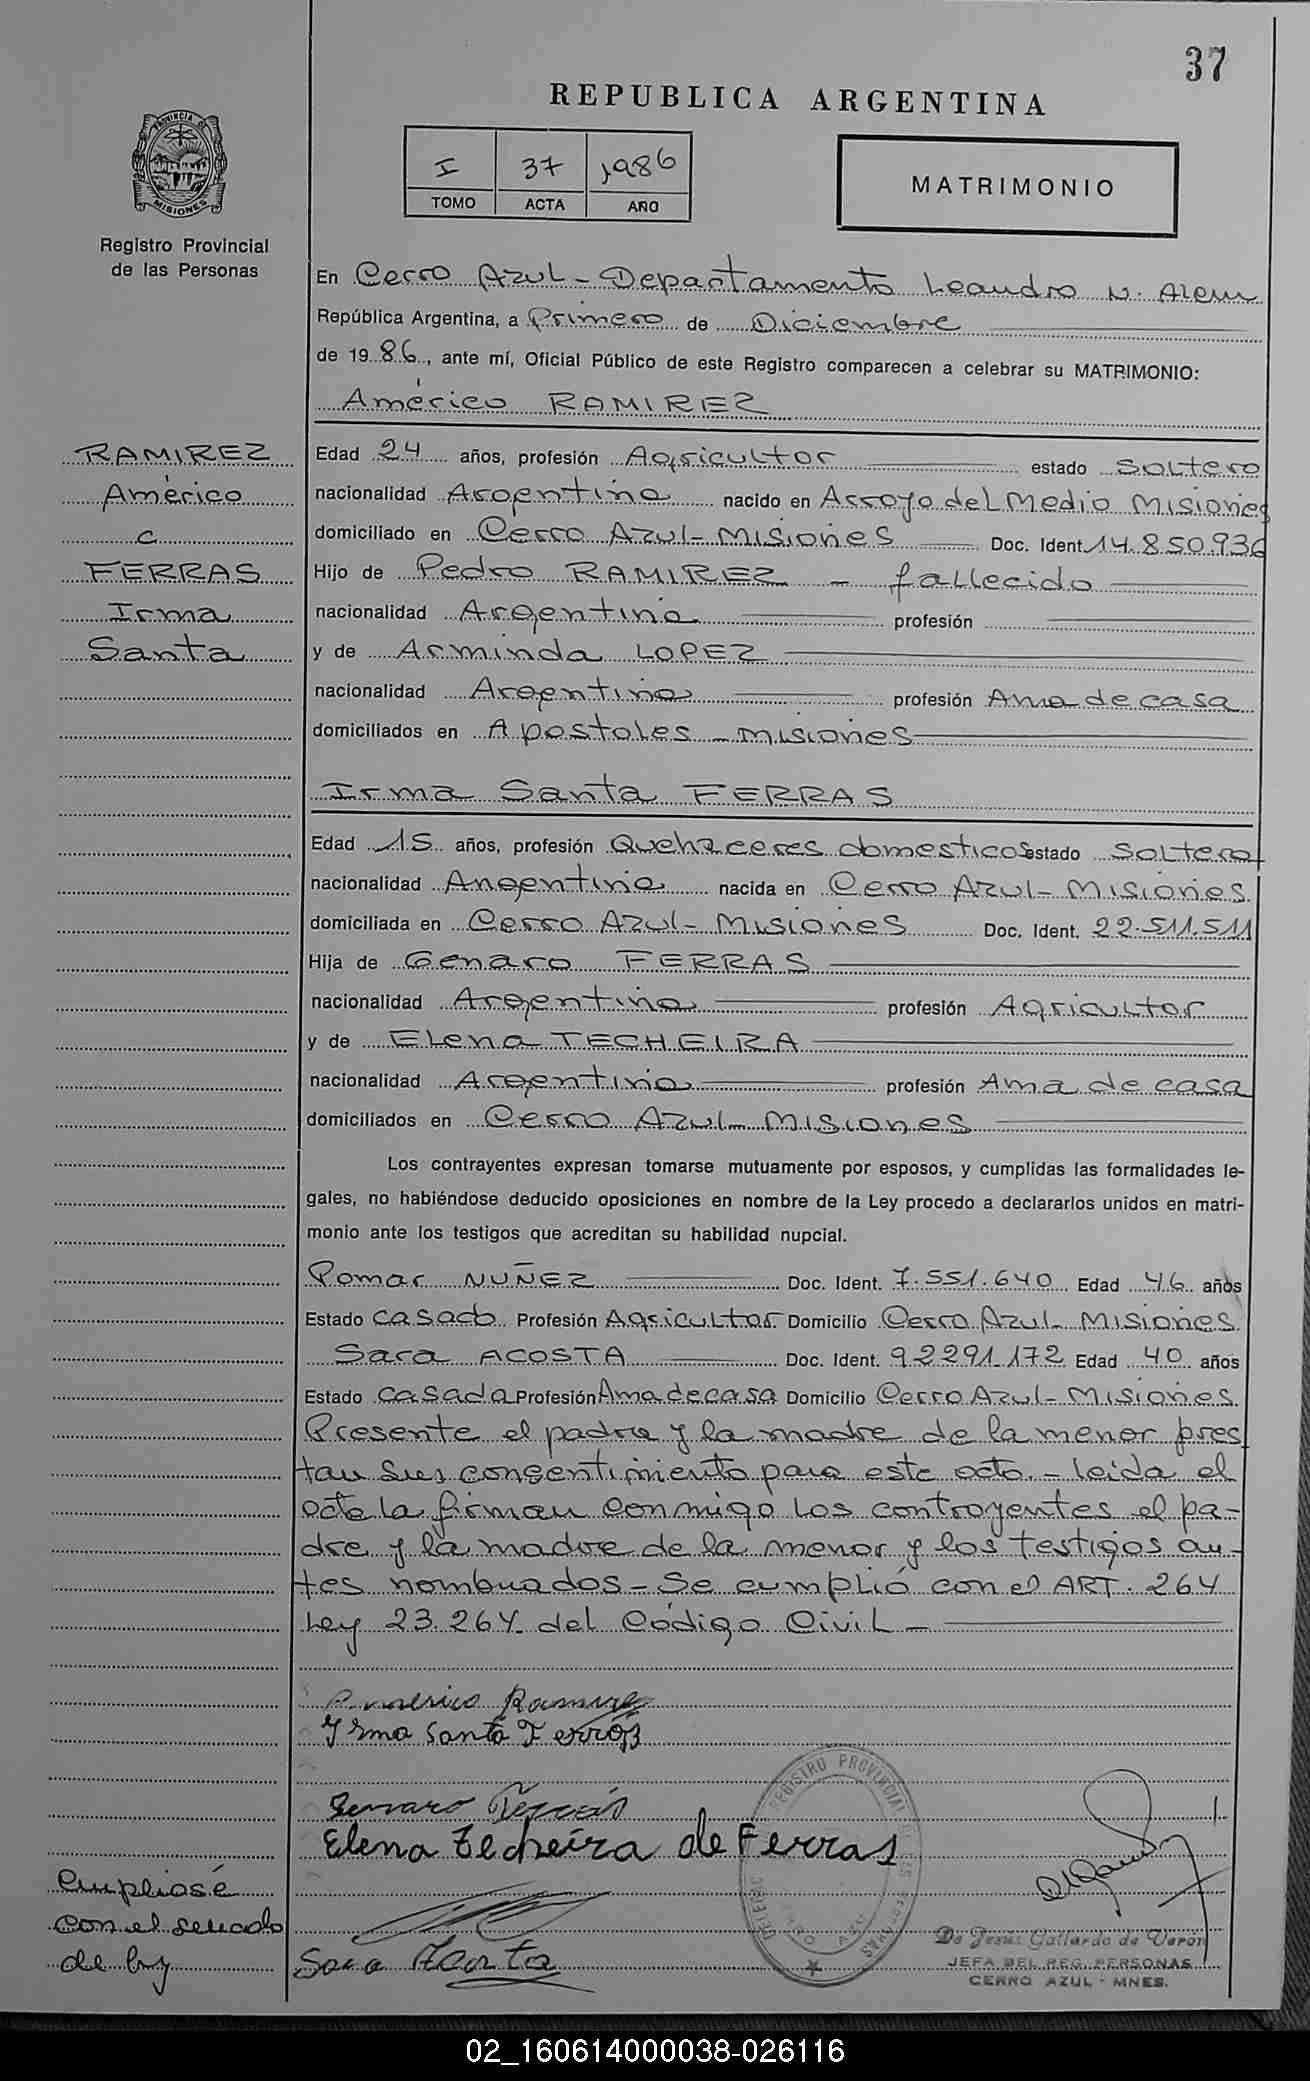 37
REPUBLICA ARGENTINA
PROVINCIA DE
MISIONES
Registro Provincial
de las Personas
I 37 1986
TOMO ACTA AÑO
MATRIMONIO
En Cerro Azul - Departamento Leandro N. Alem
República Argentina, a Primero de Diciembre
de 1986, ante mí, Oficial Público de este Registro comparecen a celebrar su MATRIMONIO:
Américo RAMIREZ
RAMIREZ
Américo
c
FERRAS
Irma
Santa
Edad 24 años, profesión Agricultor estado Soltero
nacionalidad Argentina nacido en Arroyo del Medio Misiones
domiciliado en Cerro Azul - Misiones Doc. Ident. 14.850.936
Hijo de Pedro RAMIREZ - fallecido
nacionalidad Argentina profesión
y de Arminda LOPEZ
nacionalidad Argentina profesión Ama de casa
domiciliados en Apostoles - Misiones
Irma Santa FERRAS
Edad 15 años, profesión Quehaceres domesticos estado Soltera
nacionalidad Argentina nacida en Cerro Azul - Misiones
domiciliada en Cerro Azul - Misiones Doc. Ident. 22.511.511
Hija de Genaro FERRAS
nacionalidad Argentina profesión Agricultor
y de Elena TECHEIRA
nacionalidad Argentina profesión Ama de casa
domiciliados en Cerro Azul - Misiones
Los contrayentes expresan tomarse mutuamente por esposos, y cumplidas las formalidades le-
gales, no habiéndose deducido oposiciones en nombre de la Ley procedo a declararlos unidos en matri-
monio ante los testigos que acreditan su habilidad nupcial.
Pomar NUÑEZ Doc. Ident. 7.551.640 Edad 46 años
Estado casado Profesión Agricultor Domicilio Cerro Azul - Misiones
Sara ACOSTA Doc. Ident. 92291.172 Edad 40 años
Estado casada Profesión Ama de casa Domicilio Cerro Azul - Misiones
Presente el padre y la madre de la menor pres
tan sus consentimiento para este acto. - leida el
acta la firman conmigo los contrayentes el pa-
dre y la madre de la menor y los testigos an-
tes nombrados - Se cumplió con el ART. 264
Ley 23.264 del Código Civil -
Americo Ramirez
Irma Santa Ferras
Genaro Ferrás
Elena Techeira de Ferras
Sara Acosta
REGISTRO PROVINCIAL
De Jesús Gallardo de Verón
JEFA DEL REG. PERSONAS
CERRO AZUL - MNES.
Cumpliose
con el sellado
de ley
02_160614000038-026116